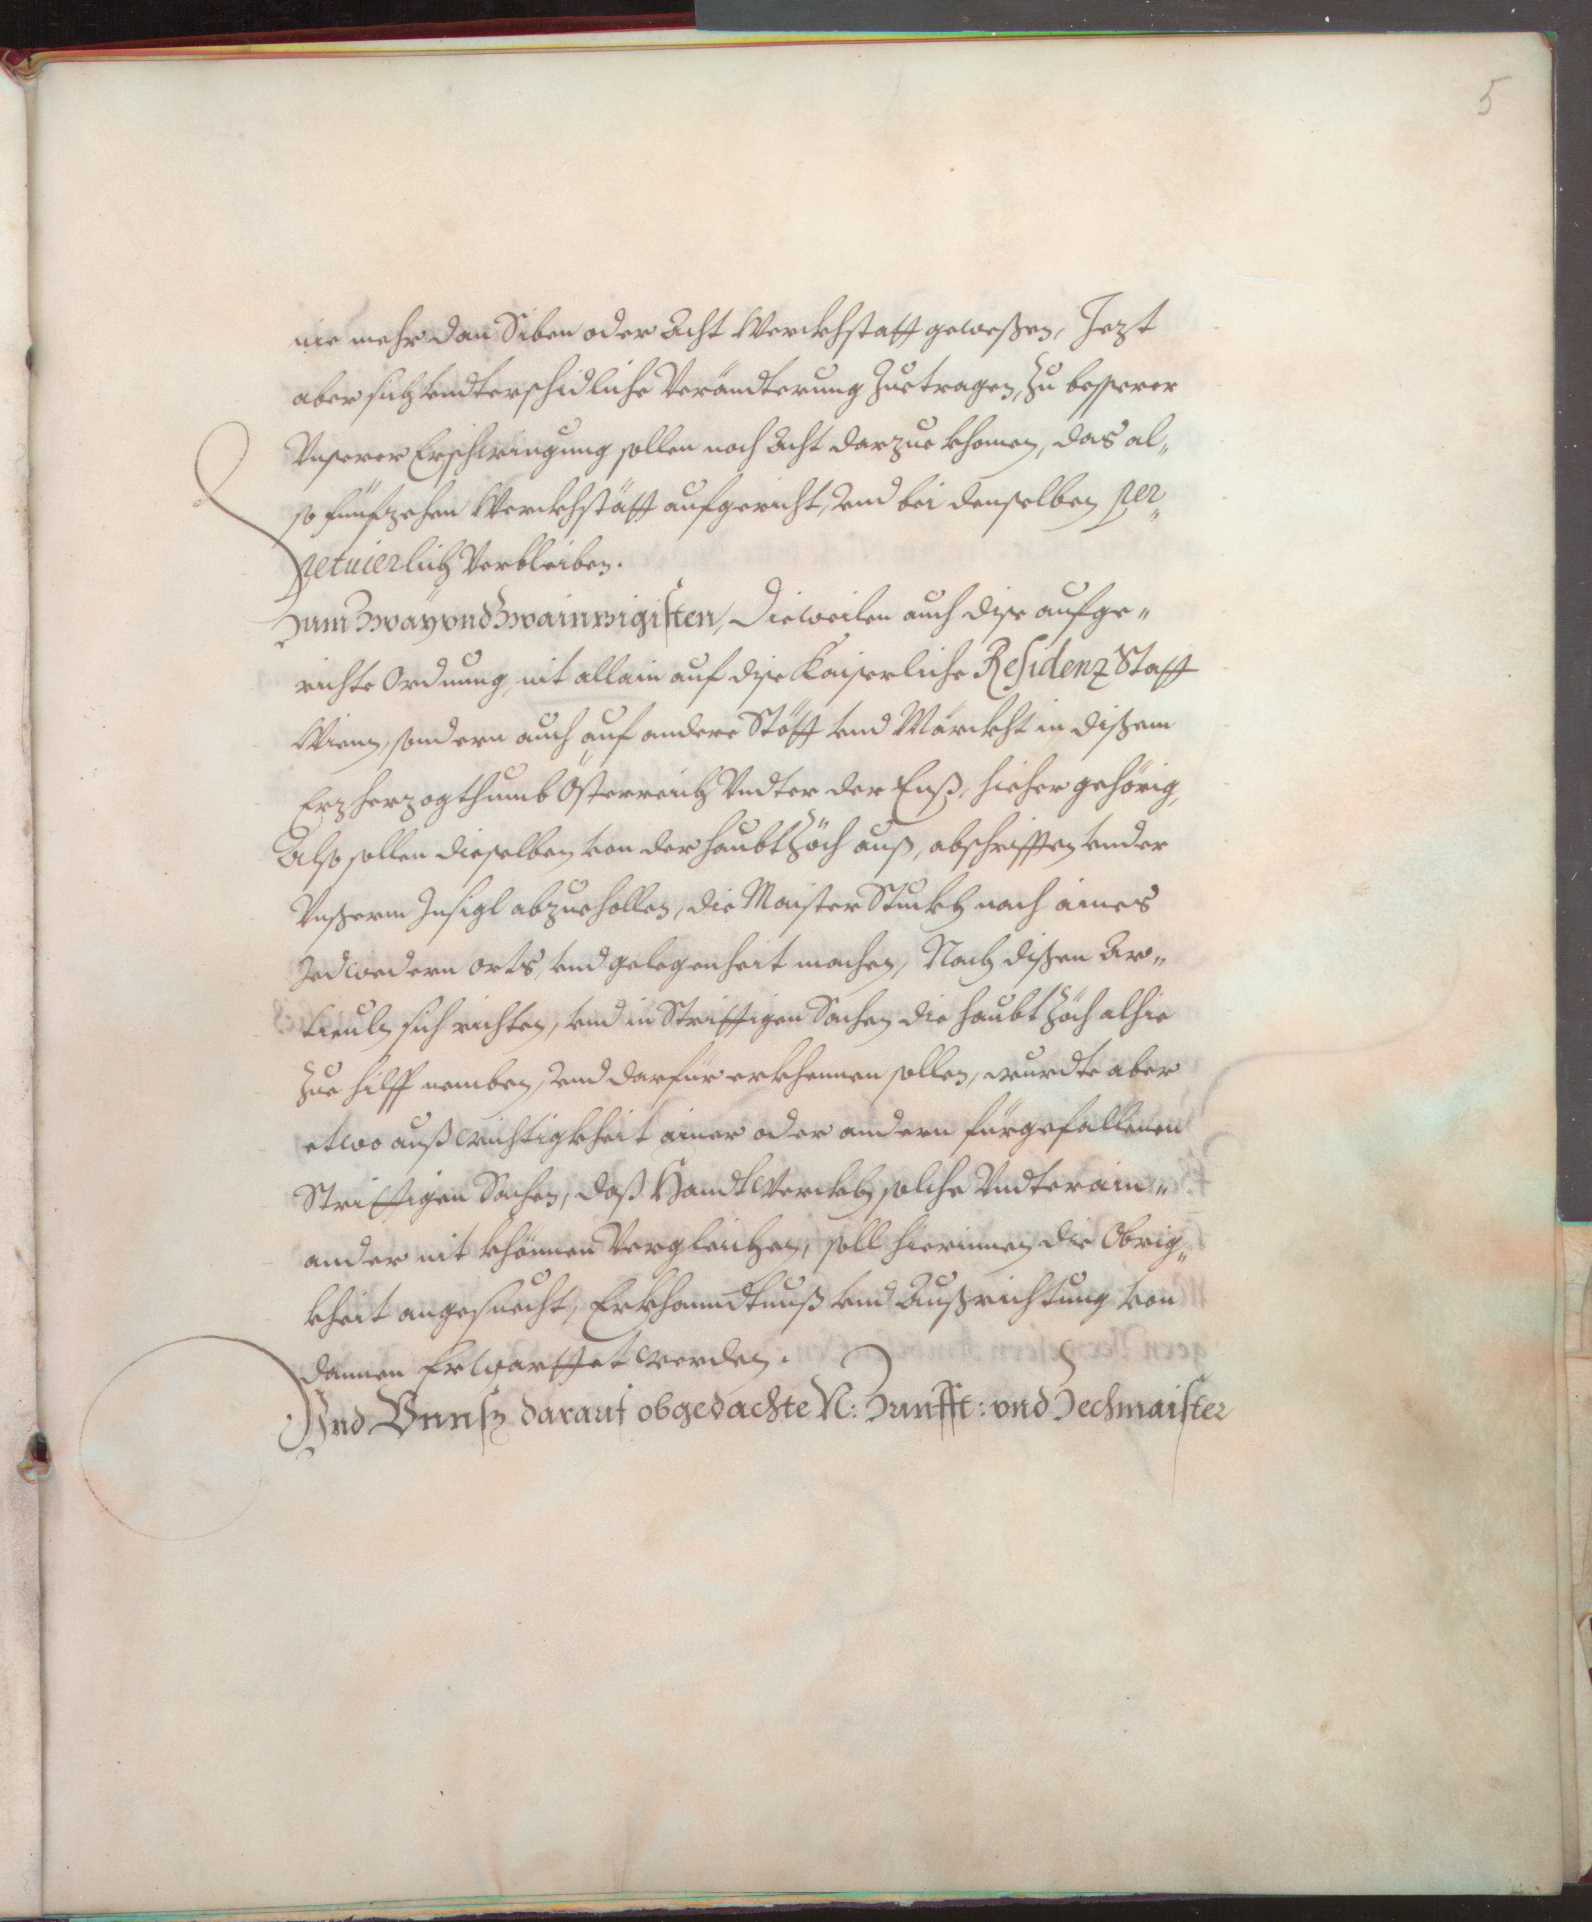 5
nie mehr dan Siben oder Acht Werckhstatt geweßen, Jezt
aber sich vndterschidliche Verändterung Zuetragen, Zu besserer
Vnserer Erschwingung sollen noch Acht darzue khomen, das al„
so funfzehen Werckhstätt aufgericht, vnd bei denselben per„
petuierlich Verbleiben.
Zum Zway vnd Zwainzigisten, Dieweilen auch dise aufge„
richte Ordnung, nit allain auf dise Kaiserliche Residenz Statt
Wienn, sondern auch auf andere Stätt vnd Märckht in dißem
Erzherzogthumb Össterreich Vndter der Enß, hieher gehörig,
Also sollen dieselben von der haubt Zöch auß, abschrifften vnder
Vnßerm Insigl abzuehollen, die Maister Stuckh nach aines
Jedwedern orts, vnd gelegenheit machen, Nach dißen Ar„
ticuln sich richten, vnd in Strittigen Sachen die haubt Zöch alhie
Zue hilff nemben, vnd darfür erkhennen sollen, wurdte aber
etwo auß wichtigkheit ainer oder andern fürgefallenen
Strittigen Sachen, daß Handtwerckh solche Vndterain„
ander nit khönnen Vergleichen, soll hierinnen die Obrig„
kheit angesuecht, Erkhanndtnuß vnd Außrichtung von
dannen Erwarttet werden.
Vnd Vnnß darauf obgedachte N: Zunfft: vnd Zechmaister